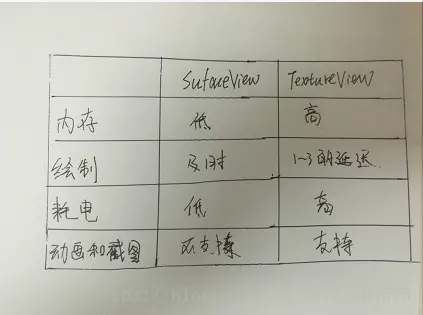 SufaceView TextureView
内存 低 高
绘制 及时 1~3帧延迟
耗电 低 高
动画和截图 不支持 支持